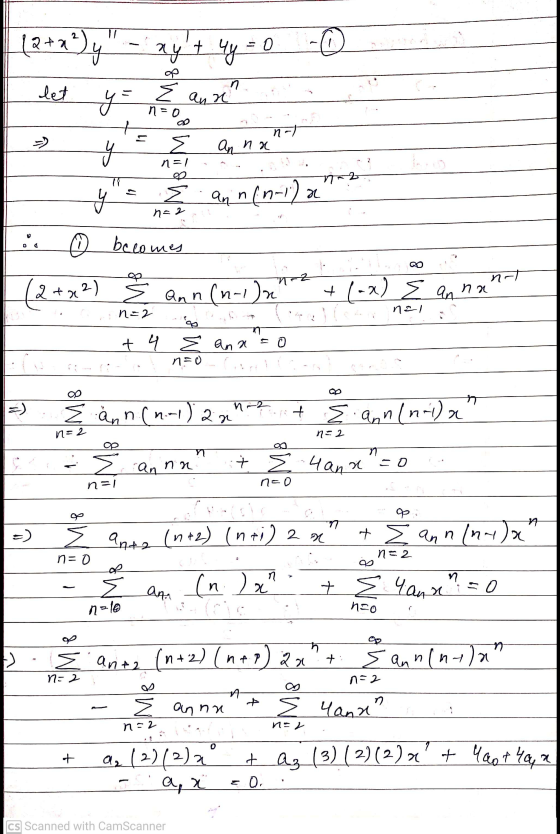 (2+x²)y'' - xy' + 4y = 0 -①
let y = ∞ Σ n=0 aₙ xⁿ
⇒ y' = ∞ Σ n=1 aₙ n xⁿ⁻¹
y'' = ∞ Σ n=2 aₙ n(n-1) xⁿ⁻²
∴ ① becomes
(2+x²) ∞ Σ n=2 aₙ n(n-1)xⁿ⁻² + (-x) ∞ Σ n=1 aₙ n xⁿ⁻¹
+ 4 ∞ Σ n=0 aₙ xⁿ = 0
⇒ ∞ Σ n=2 aₙ n(n-1) 2xⁿ⁻² + ∞ Σ n=2 aₙ n(n-1) xⁿ
- ∞ Σ n=1 aₙ n xⁿ + ∞ Σ n=0 4aₙ xⁿ = 0
⇒ ∞ Σ n=0 aₙ₊₂ (n+2) (n+1) 2 xⁿ + ∞ Σ n=2 aₙ n(n-1)xⁿ
- ∞ Σ aₙ (n ) xⁿ + ∞ Σ n=0 4aₙ xⁿ = 0
⇒ ∞ Σ n=2 aₙ₊₂ (n+2) (n+1) 2xⁿ + ∞ Σ n=2 aₙ n(n-1)xⁿ
- ∞ Σ n=2 aₙ n xⁿ + ∞ Σ n=2 4aₙ xⁿ
+ a₂ (2)(2)x⁰ + a₃ (3)(2)(2)x' + 4a₀ + 4a₁ x
- a₁ x = 0.
CS Scanned with CamScanner